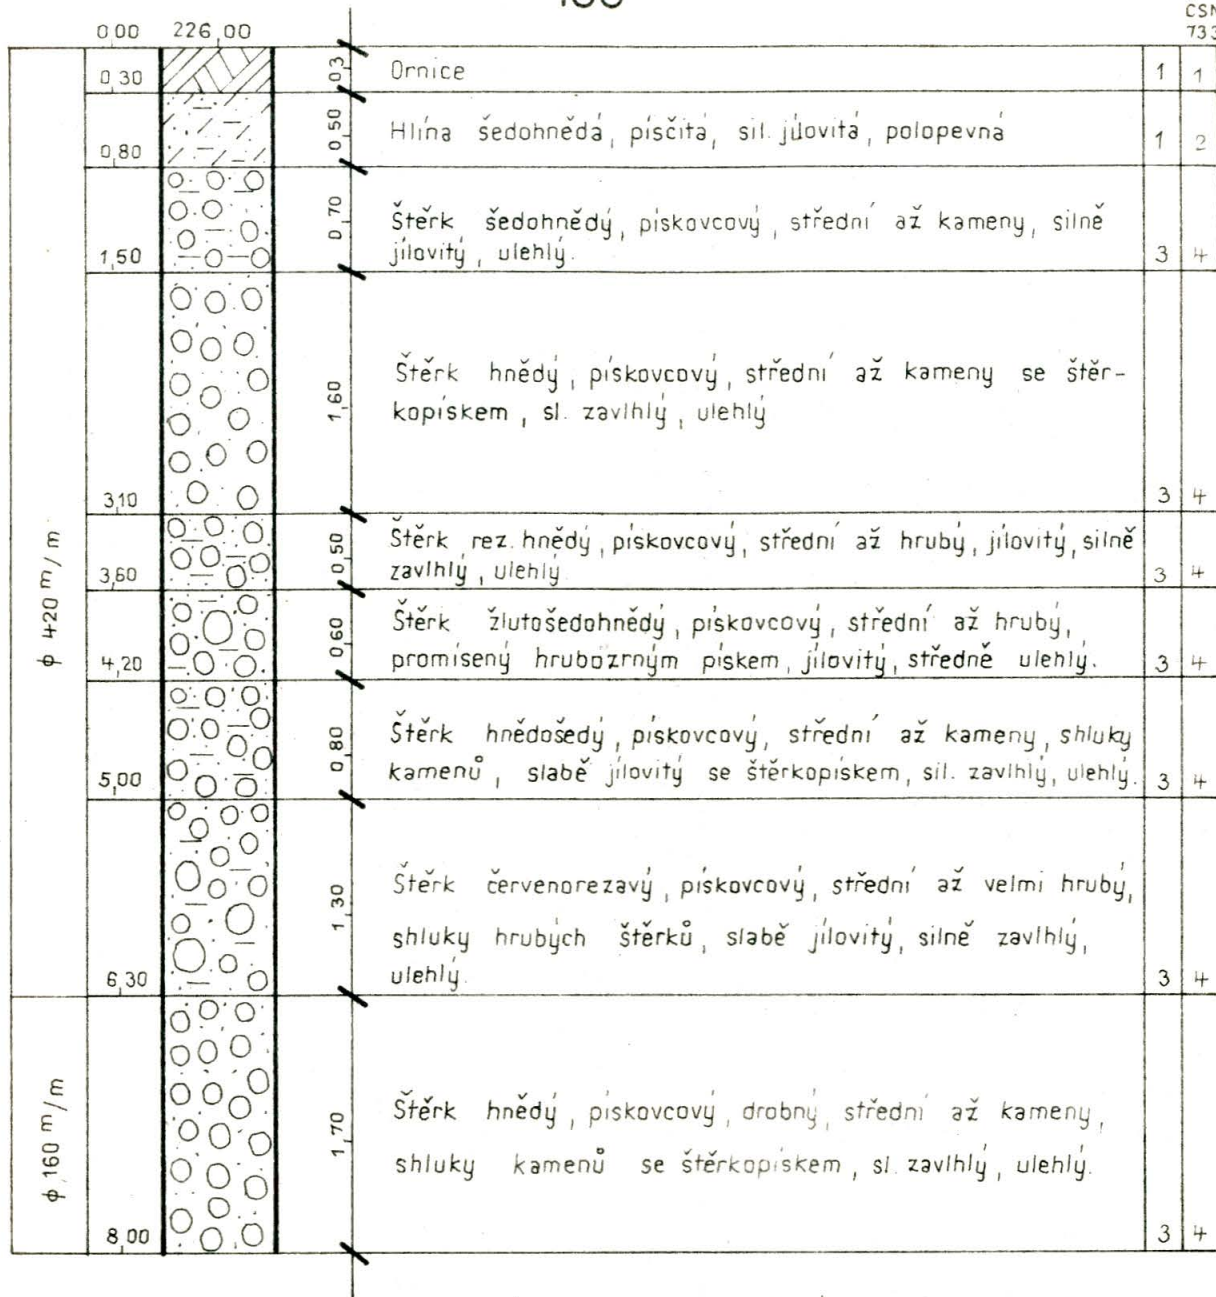 ČSN
0,00 226,00
0,30 0,3 Ornice 1 1
0,80 0,50 Hlína šedohnědá, písčitá, sil. jílovitá, polopevná 1 2
0,70 Štěrk šedohnědý, pískovcový, střední až kameny, silně
1,50 jílovitý, ulehlý. 3 4
Štěrk hnědý, pískovcový, střední až kameny se štěr-
1,60 kopískem, sl. zavlhlý, ulehlý
3,10 3 4
0,50 Štěrk rez. hnědý, pískovcový, střední až hrubý, jílovitý, silně
3,60 zavlhlý, ulehlý 3 4
φ 420 m/m
0,60 Štěrk žlutošedohnědý, pískovcový, střední až hrubý,
4,20 promísený hrubozrným pískem, jílovitý, středně ulehlý. 3 4
0,80 Štěrk hnědošedý, pískovcový, střední až kameny, shluky
5,00 kamenů, slabě jílovitý se štěrkopískem, sil. zavlhlý, ulehlý. 3 4
Štěrk červenorezavý, pískovcový, střední až velmi hrubý,
1,30 shluky hrubých štěrků, slabě jílovitý, silně zavlhlý,
6,30 ulehlý. 3 4
Štěrk hnědý, pískovcový, drobný, střední až kameny,
φ 160 m/m 1,70 shluky kamenů se štěrkopískem, sl. zavlhlý, ulehlý.
8,00 3 4